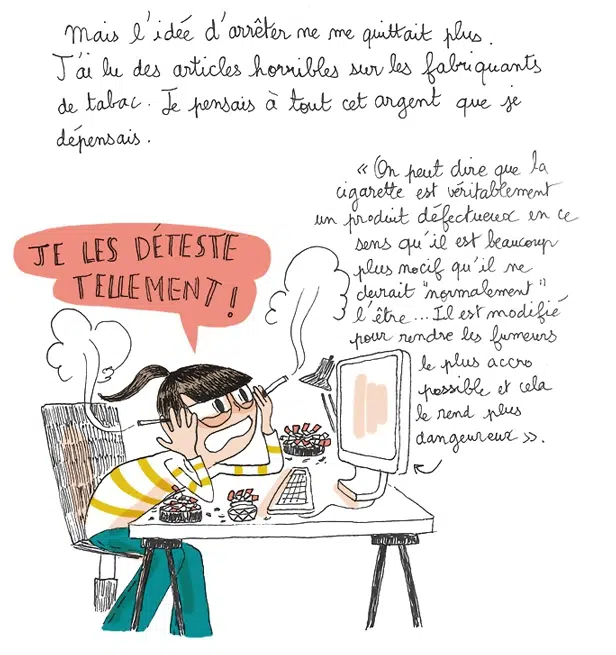 Mais l'idée d'arrêter ne me quittait plus.
J'ai lu des articles horribles sur les fabriquants
de tabac. Je pensais à tout cet argent que je
dépensais.
« On peut dire que la
cigarette est véritablement
un produit défectueux en ce
sens qu'il est beaucoup
plus nocif qu'il ne
devrait "normalement"
l'être... Il est modifié
pour rendre les fumeurs
le plus accro
possible et cela
le rend plus
dangeureux ».
JE LES DÉTESTE
TELLEMENT !